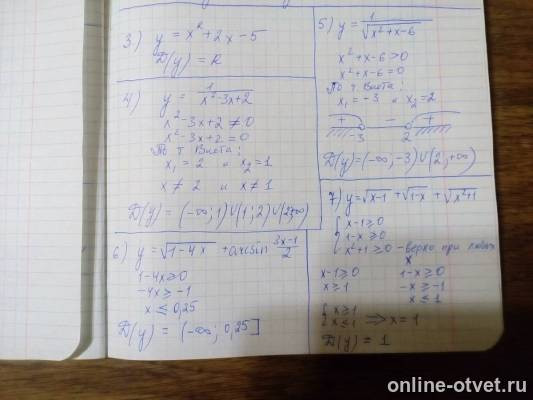 3) y = x² + 2x - 5
D(y) = R
4) y = 1/(x² - 3x + 2)
x² - 3x + 2 ≠ 0
x² - 3x + 2 = 0
По т. Виета:
x₁ = 2 и x₂ = 1
x ≠ 2 и x ≠ 1
D(y) = (-∞; 1) ∪ (1; 2) ∪ (2; +∞)
6) y = √(1-4x) + arcsin (3x-1)/2
1-4x ≥ 0
-4x ≥ -1
x ≤ 0,25
D(y) = (-∞; 0,25]
5) y = 1/√(x²+x-6)
x² + x - 6 > 0
x² + x - 6 = 0
По т. Виета:
x₁ = -3 и x₂ = 2
+ - +
-3 2
D(y) = (-∞; -3) ∪ (2; +∞)
7) y = √(x-1) + √(1-x) + √(x²+1)
{ x-1 ≥ 0
1-x ≥ 0
x²+1 ≥ 0 - верно при любых
x
x-1 ≥ 0 1-x ≥ 0
x ≥ 1 -x ≥ -1
x ≤ 1
{ x ≥ 1
x ≤ 1 ⇒ x = 1
D(y) = 1
online-otvet.ru